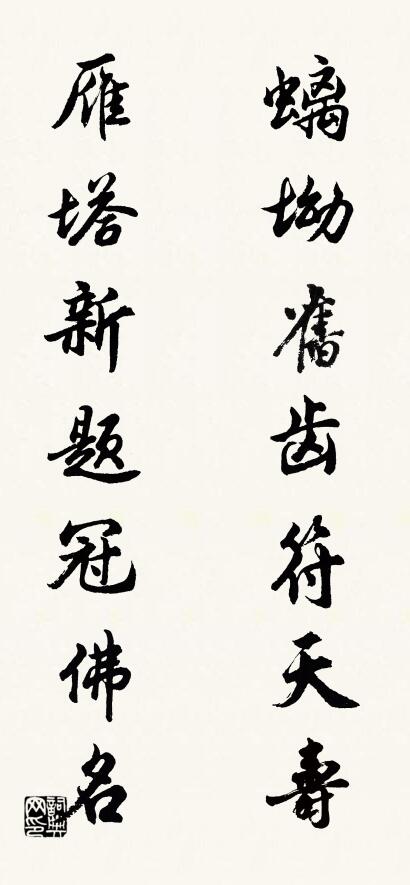 螭坳舊齿符天壽
雁塔新题冠佛名